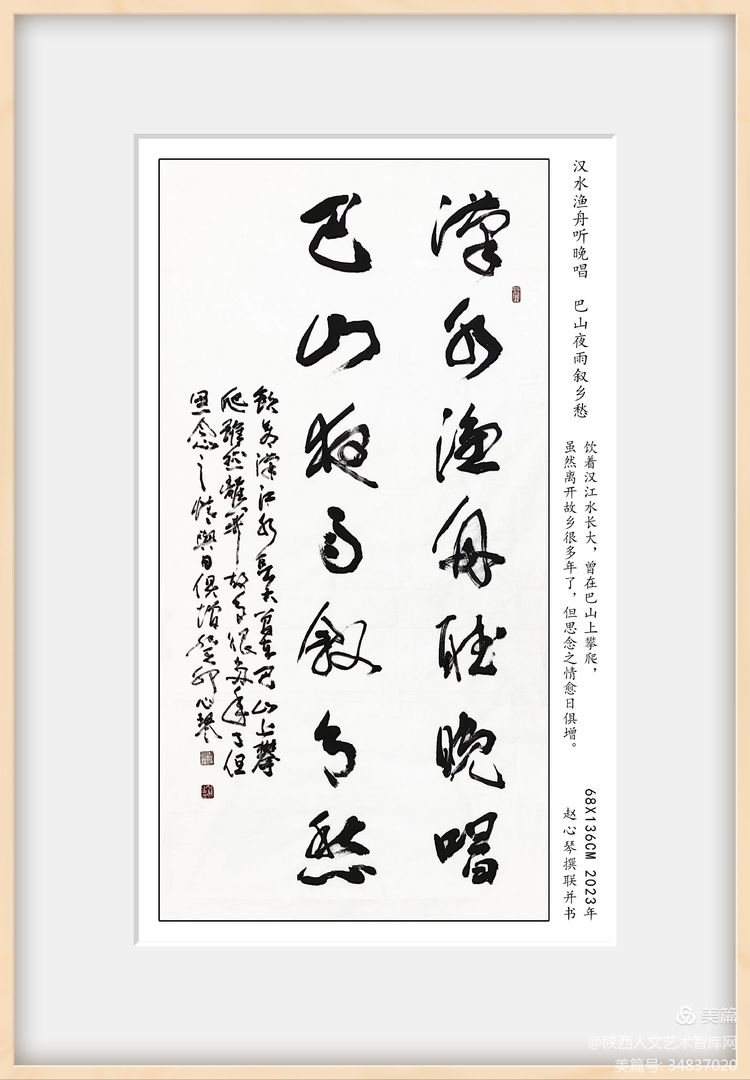 汉水渔舟听晚唱 巴山夜雨叙乡愁
饮着汉江水长大，曾在巴山上攀爬，
虽然离开故乡很多年了，但思念之情愈日俱增。
68X136CM 2023年
赵心琴撰联并书
漢水漁舟聽晚唱
巴山夜雨叙乡愁
飲着漢江水長大曾在巴山上攀
爬雖然離開故乡很多年了但
思念之情與日俱增癸卯心琴
美篇
@陕西人文艺术智库网
美篇号: 34837020